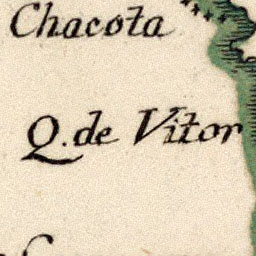 Chacota
Q. de Vitor